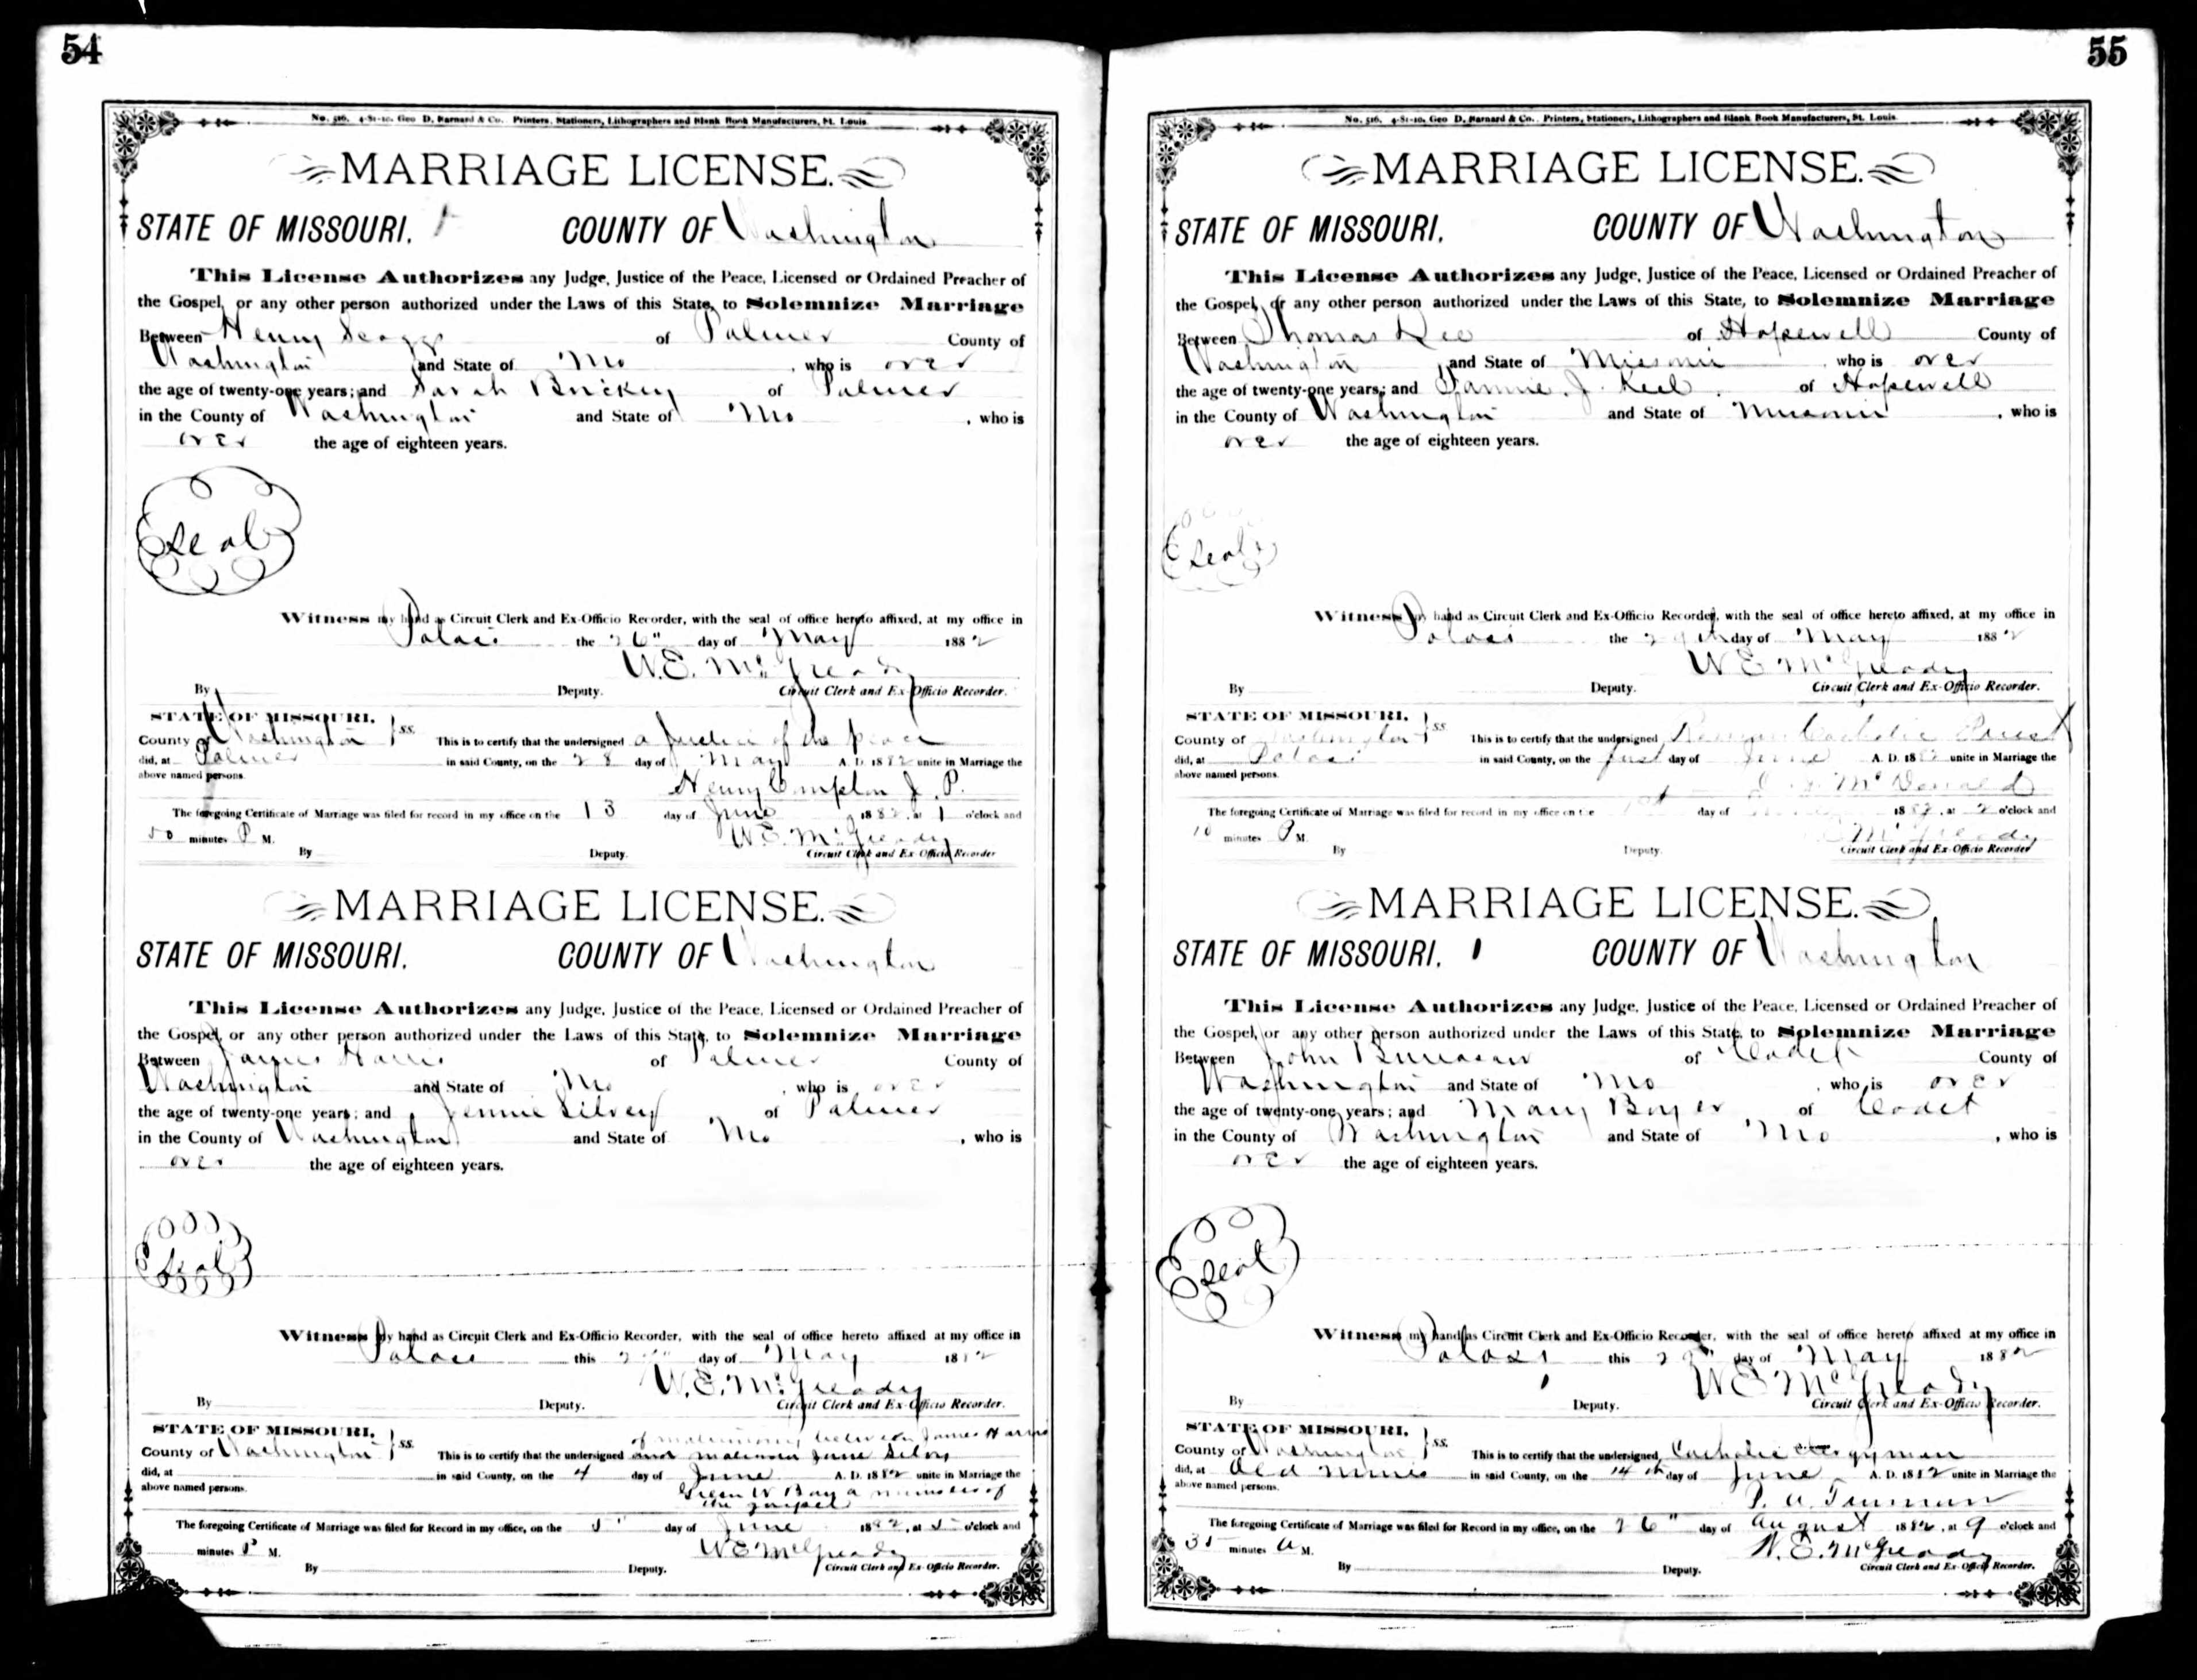 54
No. 516. 4-81-10. Geo D. Barnard & Co. Printers, Stationers, Lithographers and Blank Book Manufacturers, St. Louis.
MARRIAGE LICENSE.
STATE OF MISSOURI. COUNTY OF Washington
This License Authorizes any Judge, Justice of the Peace, Licensed or Ordained Preacher of
the Gospel, or any other person authorized under the Laws of this State, to Solemnize Marriage
Between Henry of Palmer County of
Washington and State of Mo, who is over
the age of twenty-one years; and Sarah Brickey of Palmer
in the County of Washington and State of Mo, who is
over the age of eighteen years.
Seal
Witness my hand as Circuit Clerk and Ex-Officio Recorder, with the seal of office hereto affixed, at my office in
Potosi the 26" day of May 1882
W.E. McGready
By Deputy. Circuit Clerk and Ex-Officio Recorder.
STATE OF MISSOURI,
County of Washington } ss. This is to certify that the undersigned a Justice of the peace
did, at Palmer in said County, on the 28 day of May A. D. 1882 unite in Marriage the
above named persons. Henry Compton J. P.
The foregoing Certificate of Marriage was filed for record in my office on the 13 day of June 1882, at 1 o'clock and
50 minutes P M. W.E. McGready
By Deputy. Circuit Clerk and Ex Officio Recorder
MARRIAGE LICENSE.
STATE OF MISSOURI. COUNTY OF Washington
This License Authorizes any Judge, Justice of the Peace, Licensed or Ordained Preacher of
the Gospel, or any other person authorized under the Laws of this State, to Solemnize Marriage
Between James Harris of Palmer County of
Washington and State of Mo, who is over
the age of twenty-one years; and Jennie Silvey of Palmer
in the County of Washington and State of Mo, who is
over the age of eighteen years.
Seal
Witness my hand as Circuit Clerk and Ex-Officio Recorder, with the seal of office hereto affixed at my office in
Potosi this day of May 1882
W.E. McGready
By Deputy. Circuit Clerk and Ex-Officio Recorder.
STATE OF MISSOURI,
of matrimony between James Harris
County of Washington } ss. This is to certify that the undersigned and June Silvy
did, at in said County, on the 4 day of June A. D. 1882 unite in Marriage the
above named persons. Green W Bay a minister of
the gospel
The foregoing Certificate of Marriage was filed for Record in my office, on the 5" day of June 1882, at 5 o'clock and
minutes P M. W E McGready
By Deputy. Circuit Clerk and Ex-Officio Recorder.
55
No. 516. 4-81-10. Geo D. Barnard & Co. Printers, Stationers, Lithographers and Blank Book Manufacturers, St. Louis
MARRIAGE LICENSE.
STATE OF MISSOURI. COUNTY OF Washington
This License Authorizes any Judge, Justice of the Peace, Licensed or Ordained Preacher of
the Gospel, or any other person authorized under the Laws of this State, to Solemnize Marriage
Between Thomas of Hopewell County of
Washington, and State of Missouri, who is over
the age of twenty-one years; and J. of Hopewell
in the County of Washington and State of Missouri, who is
over the age of eighteen years.
Seal
Witness my hand as Circuit Clerk and Ex-Officio Recorder, with the seal of office hereto affixed, at my office in
Potosi the 29th day of May 1882
W E McGready
By Deputy. Circuit Clerk and Ex-Officio Recorder.
STATE OF MISSOURI,
County of Washington } ss. This is to certify that the undersigned Roman Catholic Priest
did, at Potosi in said County, on the first day of June A. D. 1882 unite in Marriage the
above named persons. McDonald
The foregoing Certificate of Marriage was filed for record in my office on the day of 1882, at 2 o'clock and
10 minutes P M. McGready
By Deputy. Circuit Clerk and Ex-Officio Recorder
MARRIAGE LICENSE.
STATE OF MISSOURI. COUNTY OF Washington
This License Authorizes any Judge, Justice of the Peace, Licensed or Ordained Preacher of
the Gospel, or any other person authorized under the Laws of this State, to Solemnize Marriage
Between John of Cadet County of
Washington and State of Mo, who is over
the age of twenty-one years; and Mary Boyer of Cadet
in the County of Washington and State of Mo, who is
over the age of eighteen years.
Seal
Witness my hand as Circuit Clerk and Ex-Officio Recorder, with the seal of office hereto affixed at my office in
Potosi this day of May 1882
W E McGready
By Deputy. Circuit Clerk and Ex-Officio Recorder.
STATE OF MISSOURI,
County of Washington } ss. This is to certify that the undersigned Catholic clergyman
did, at Old Mines in said County, on the 14th day of June A. D. 1882 unite in Marriage the
above named persons.
The foregoing Certificate of Marriage was filed for Record in my office, on the 26" day of August 1882, at 9 o'clock and
minutes A M. W. E. McGready
By Deputy. Circuit Clerk and Ex-Officio Recorder.